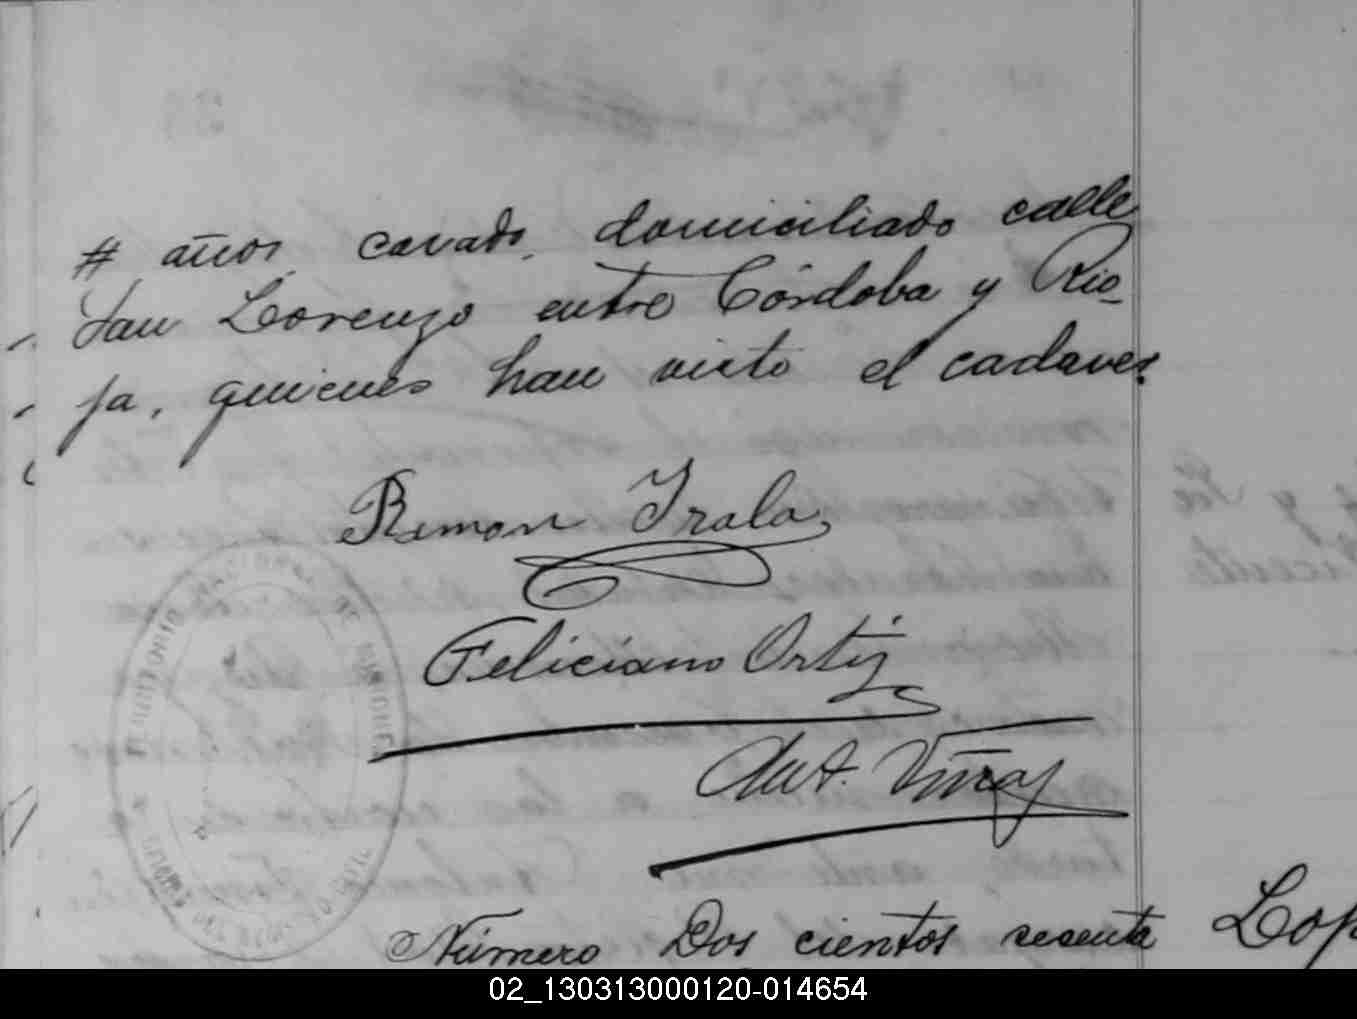 # años, casado, domiciliado calle
San Lorenzo entre Córdoba y Rio-
ja, quienes han visto el cadaver.
Ramon Irala
Feliciano Ortiz
Ant. Viñas
TERRITORIO NACIONAL DE MISIONES
Número Dos cientos sesenta
Lop
02_130313000120-014654